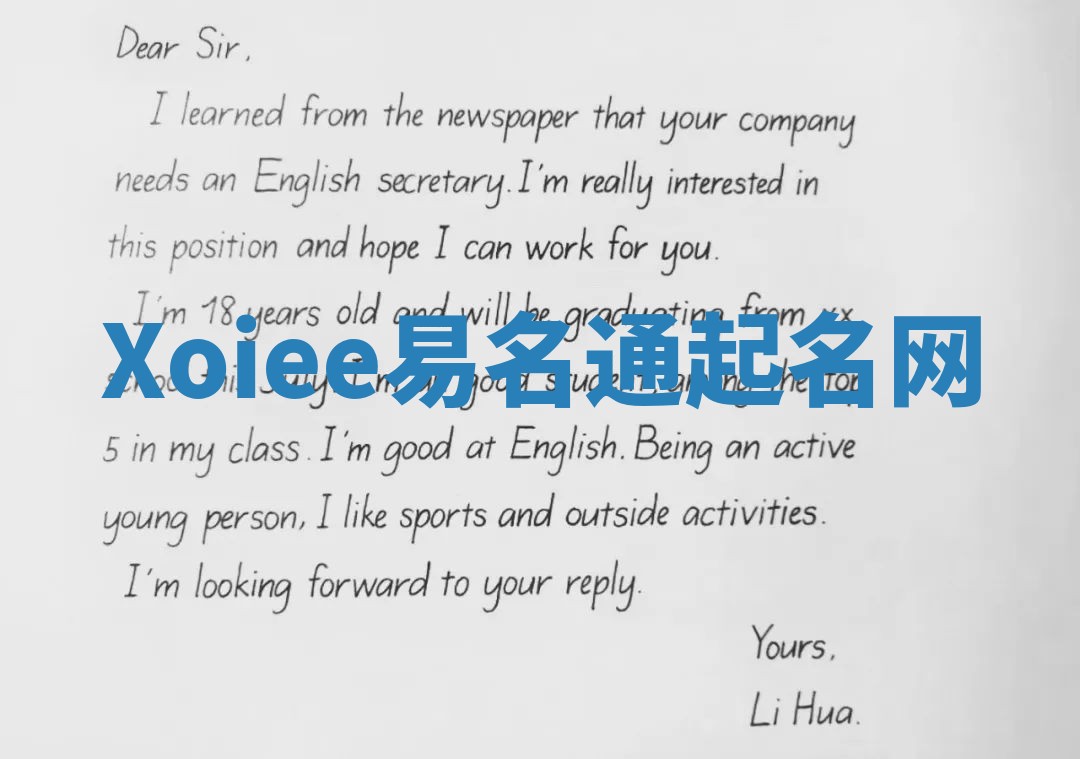 Dear Sir,
I learned from the newspaper that your company
needs an English secretary. I'm really interested in
this position and hope I can work for you.
I'm 18 years old and will be graduating from xx
Xoiee易名通起名网
school this July. I'm a good student, among the top
5 in my class. I'm good at English. Being an active
young person, I like sports and outside activities.
I'm looking forward to your reply.
Yours,
Li Hua.